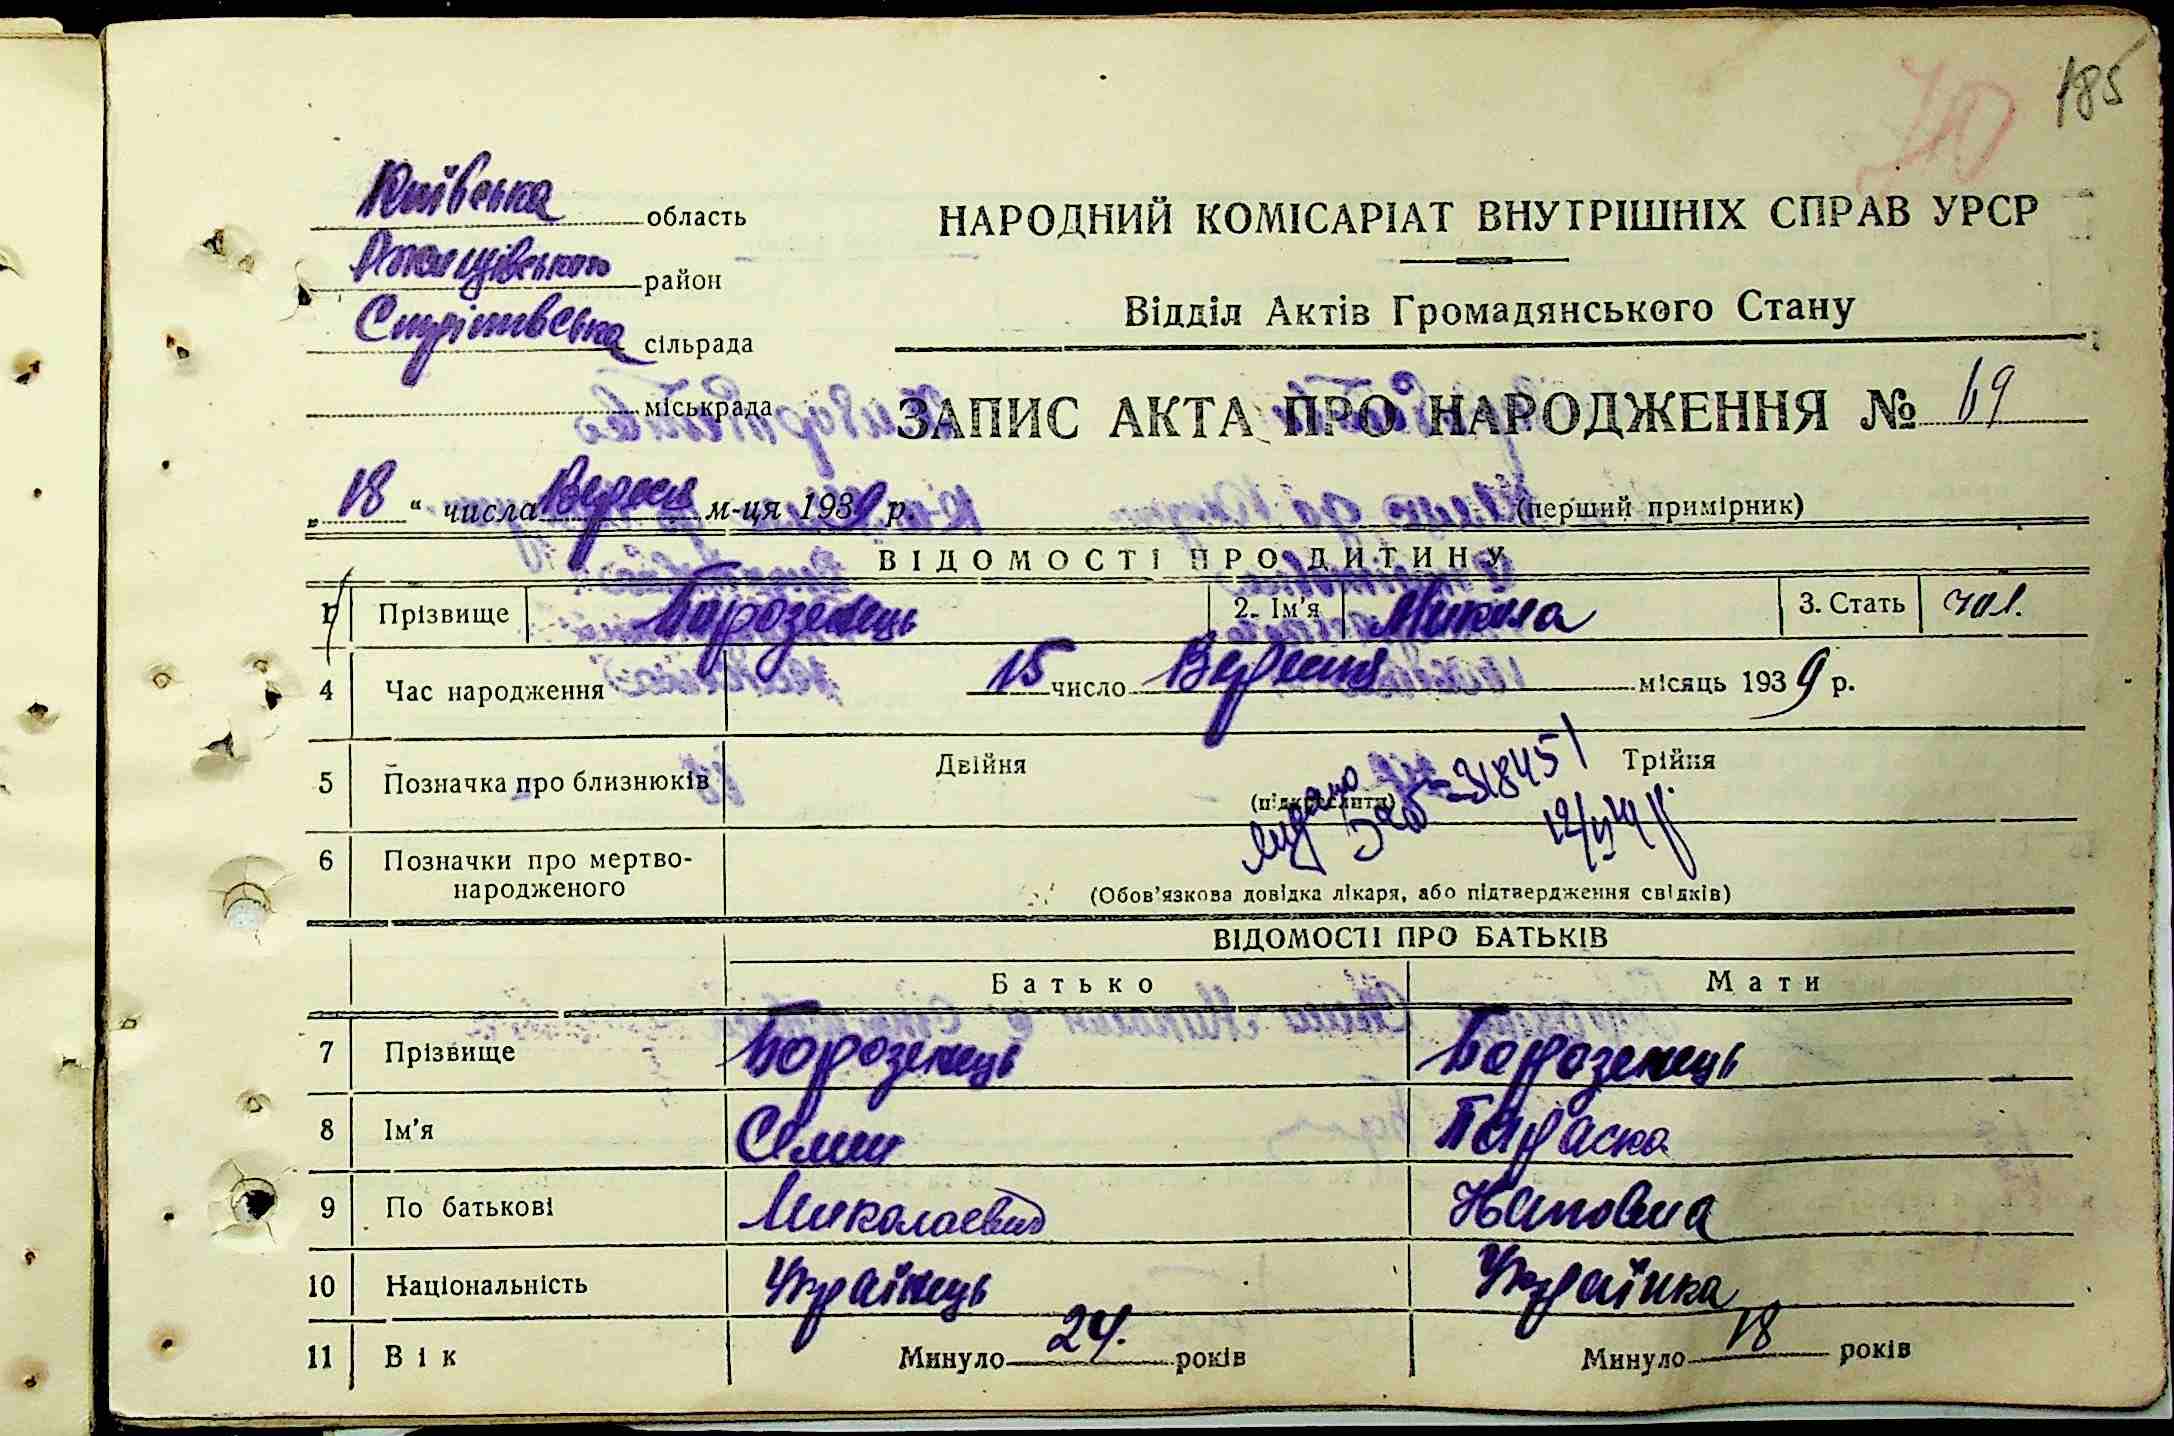 185
Київська область
Ржищівського район
Стрітівська сільрада
міськрада
НАРОДНИЙ КОМІСАРІАТ ВНУТРІШНІХ СПРАВ УРСР
Відділ Актів Громадянського Стану
ЗАПИС АКТА ПРО НАРОДЖЕННЯ № 69
„ 18 “ числа Вересня м-ця 1939 р.
(перший примірник)
ВІДОМОСТІ ПРО ДИТИНУ
1 Прізвище Борозенець 2. Ім'я Микола 3. Стать чол.
4 Час народження 15 число Вересня місяць 1939 р.
5 Позначка про близнюків Двійня Трійня
(підкреслити)
видано 318451
6 Позначки про мертво-
народженого
(Обов'язкова довідка лікаря, або підтвердження свідків)
ВІДОМОСТІ ПРО БАТЬКІВ
Батько Мати
7 Прізвище Борозенець Борозенець
8 Ім'я Семен Параска
9 По батькові Миколаевич
10 Національність Українець Українка
11 Вік Минуло 24. років Минуло 18 років